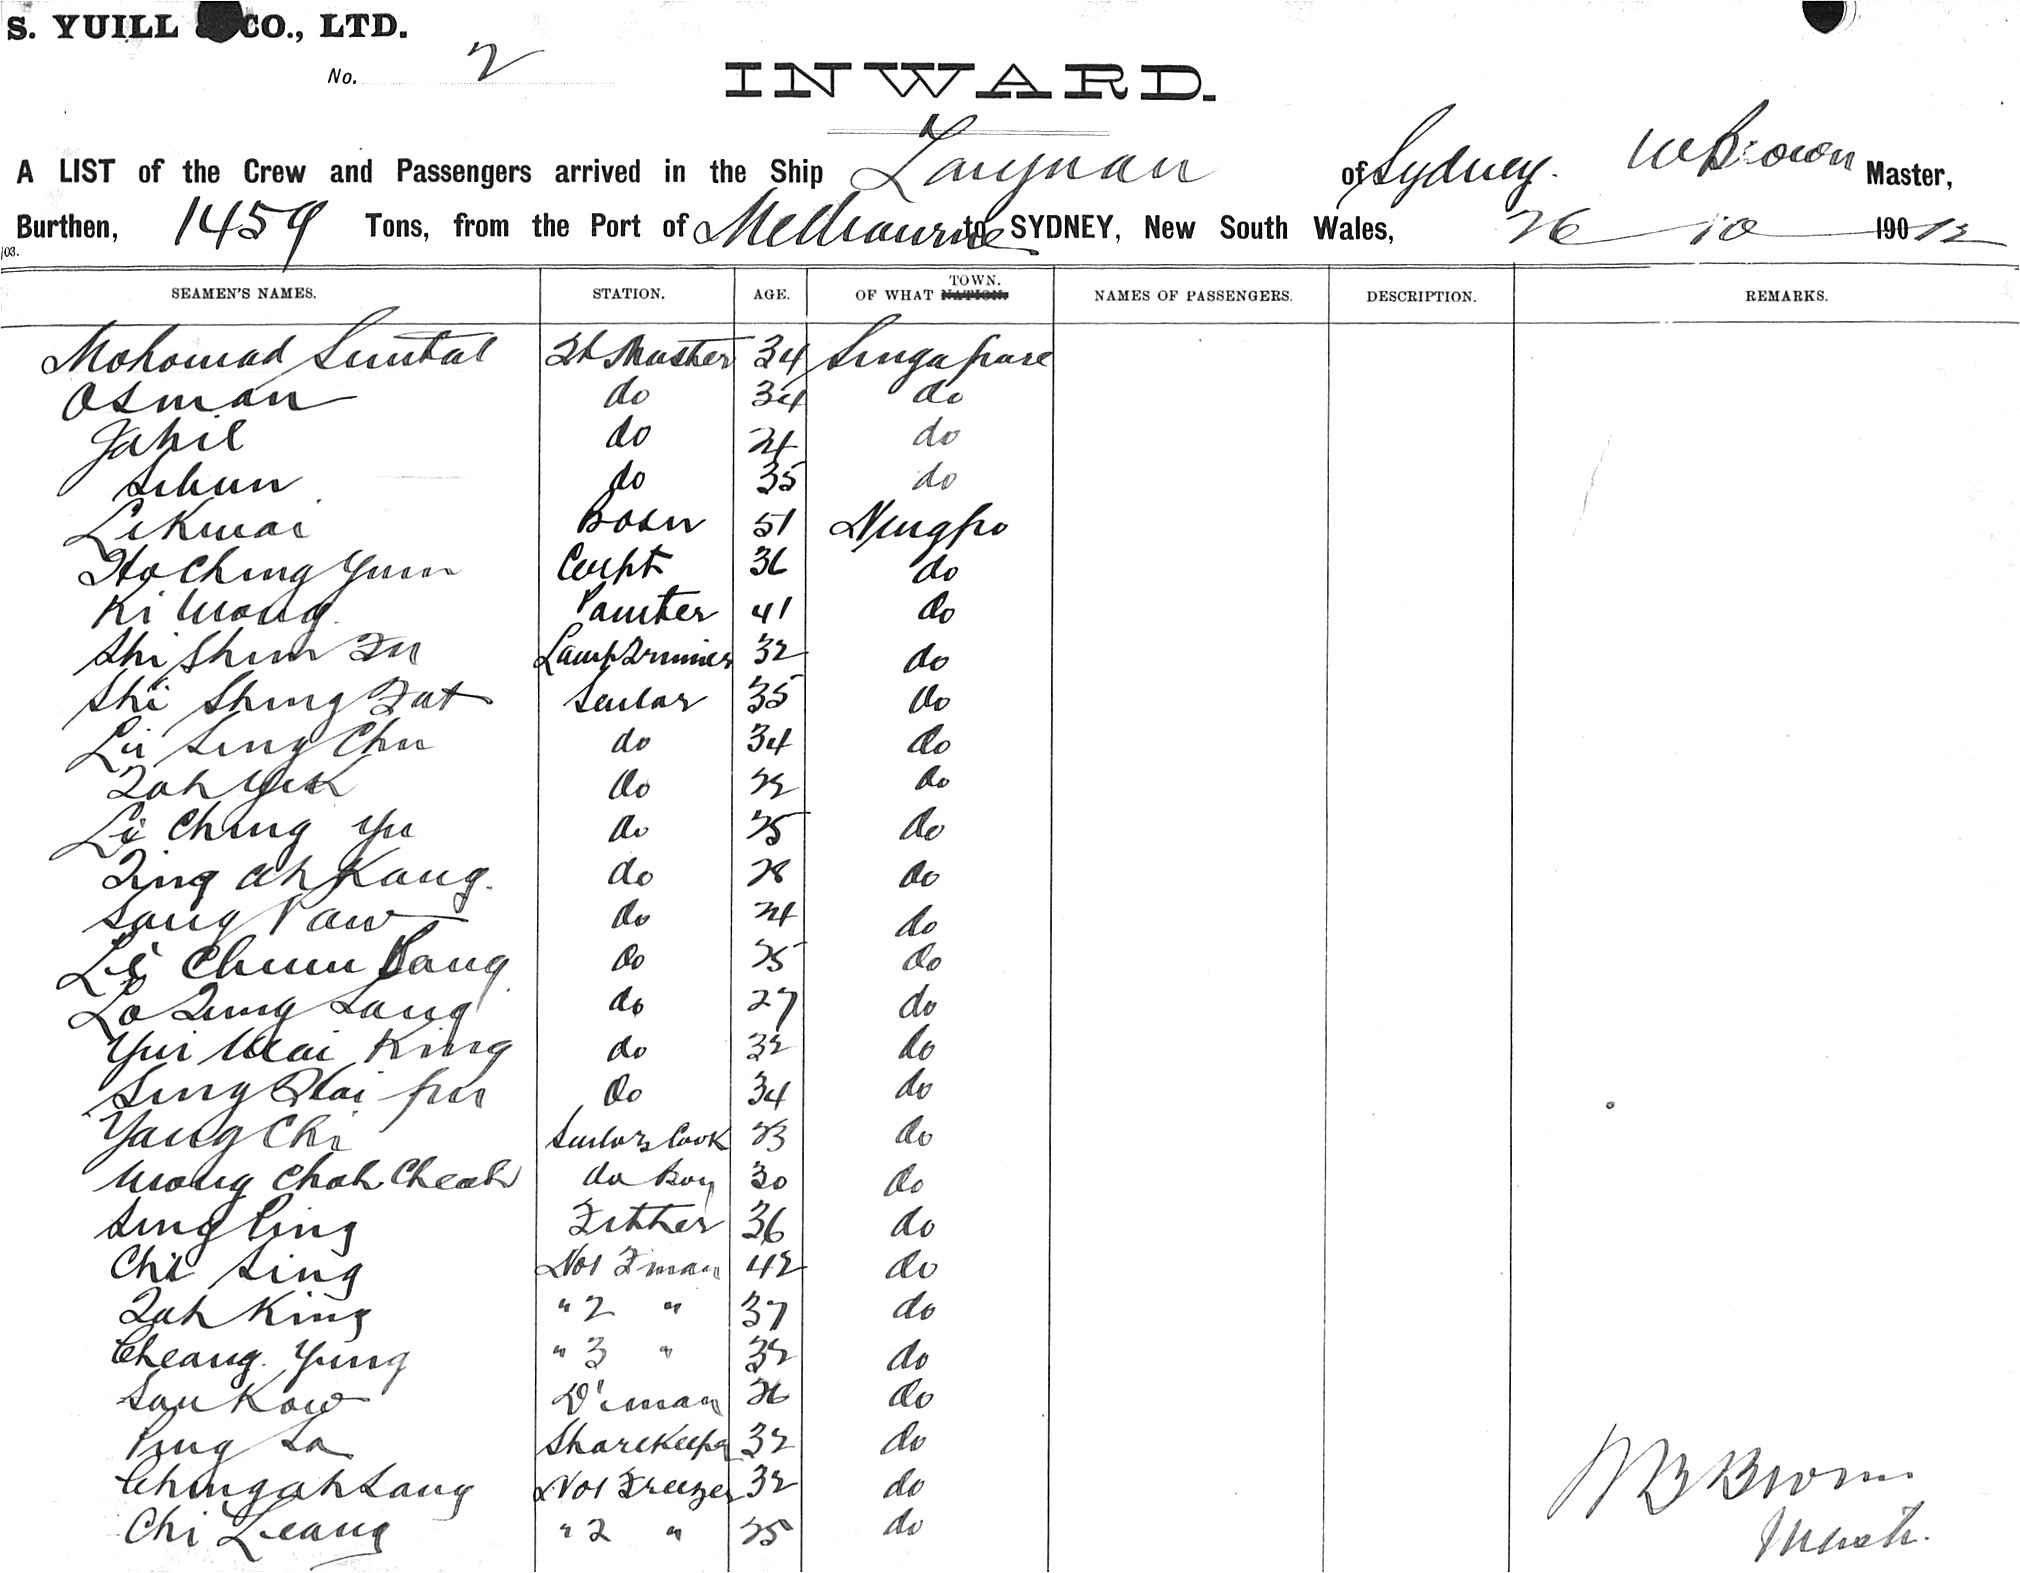 S. YUILL & CO., LTD.
No. 2
INWARD.
A LIST of the Crew and Passengers arrived in the Ship Taiyuan of Sydney. W Brown Master,
Burthen, 1459 Tons, from the Port of Melbourne to SYDNEY, New South Wales, 26 10 190 12
/03.
SEAMEN'S NAMES. STATION. AGE. OF WHAT NATION. TOWN. NAMES OF PASSENGERS. DESCRIPTION. REMARKS.
Mohomad 34 Singapore
Osman do 34 do
Jahil do 24 do
do 35 do
Li Kwai Bosn 51 Ningpo
Ho Ching Yuen Carpt 36 do
Ki Wong Painter 41 do
Shi Shun Fu Lamp Trimmer 32 do
Shi Shing Fat Sailor 35 do
Li Sing Chu do 34 do
Zah Yek do 22 do
Li Ching Yu do 25 do
Ting Ah Kang. do 28 do
Sang Paw do 24 do
Li Chuen Bang do 25 do
Lo Tung Sang do 27 do
Yui Wai King do 32 do
Sing Hai Fu do 34 do
Yang Chi Sailors Cook 23 do
Wong Chah Cheah do Boy 30 do
Sing Ping Fitter 36 do
Chi Sing No1 Fman 42 do
Zah King " 2 " 37 do
Cheang Yung " 3 " 32 do
Sau Kow D'man 26 do
Ping Sa Storekeeper 32 do
Ching ah Sang No1 Freezer 32 do
Chi Leang " 2 " 25 do
W B Brown
Mast.